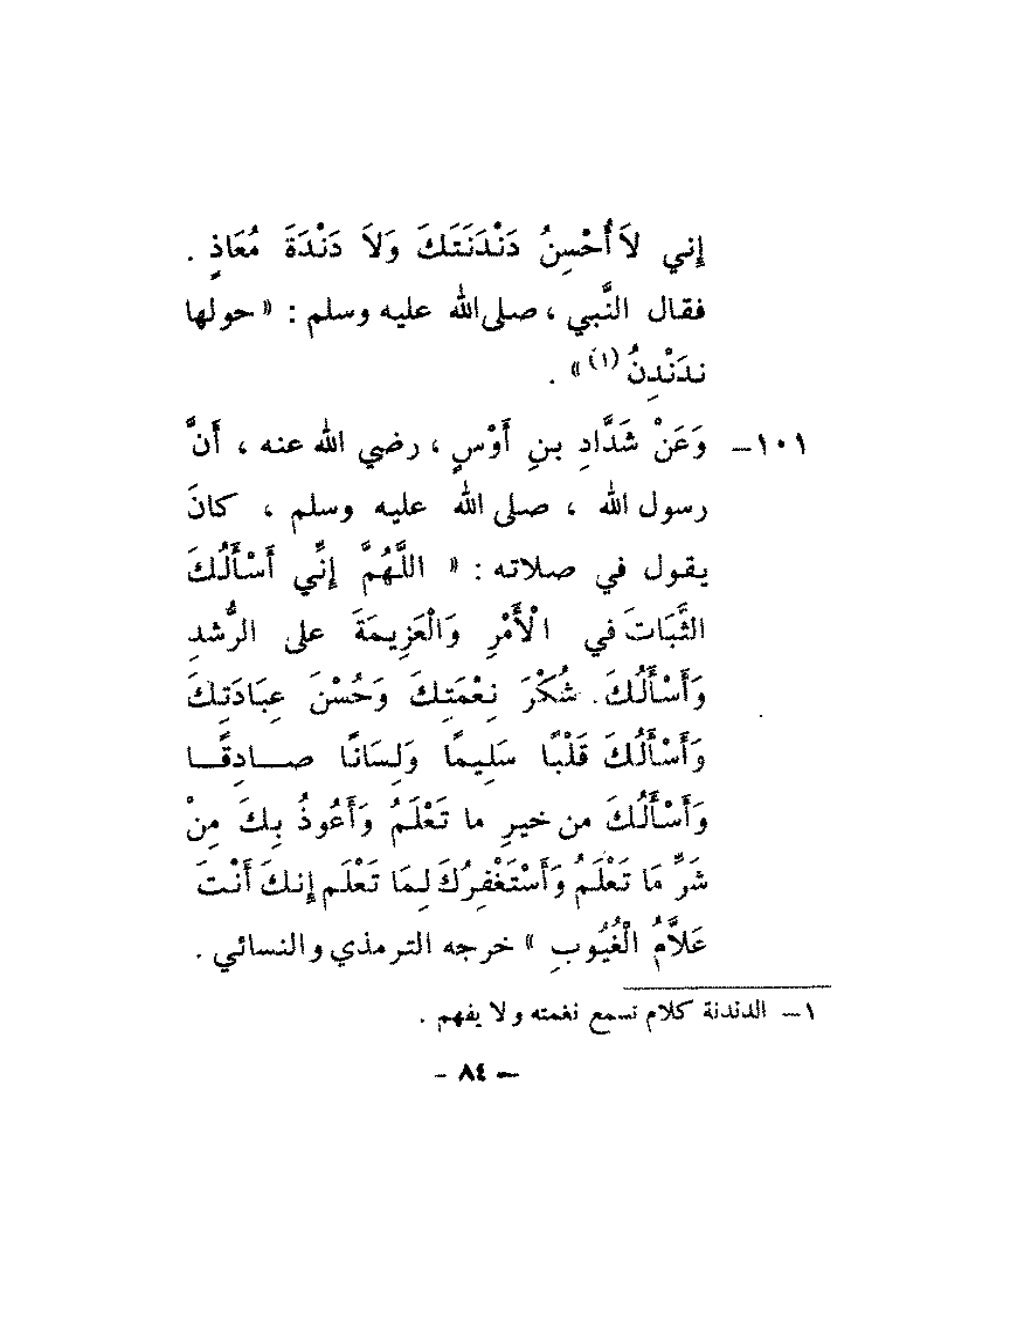 إني لاَ أُحْسِنُ دَنْدَنَتَكَ وَلاَ دَنْدَةَ مُعَاذٍ .
فقال النَّبي ، صلى الله عليه وسلم : « حولها
ندَنْدِنُ (١) » .
١٠١ – وَعَنْ شَدَّادِ بنِ أَوْسٍ ، رضي الله عنه ، أَنَّ
رسول الله ، صلى الله عليه وسلم ، كانَ
يقول في صلاته : « اللَّهُمَّ إِنِّي أَسْأَلُكَ
الثَّبَاتَ في الْأَمْرِ وَالْعَزِيمَةَ على الرُّشدِ
وَأَسْأَلُكَ . شُكْرَ نِعْمَتِكَ وَحُسْنَ عِبَادَتِكَ
وَأَسْأَلُكَ قَلْبًا سَلِيمًا وَلِسَانًا صـــادِقًـــا
وَأَسْأَلُكَ من خيرِ ما تَعْلَمُ وَأَعُوذُ بِكَ مِنْ
شَرِّ مَا تَعْلَمُ وَأَسْتَغْفِرُكَ لِمَا تَعْلَم إِنكَ أَنْتَ
عَلاَّمُ الْغُيُوبِ » خرجه الترمذي والنسائي .
١ – الدندنة كلام تسمع نغمته ولا يفهم .
– ٨٤ -